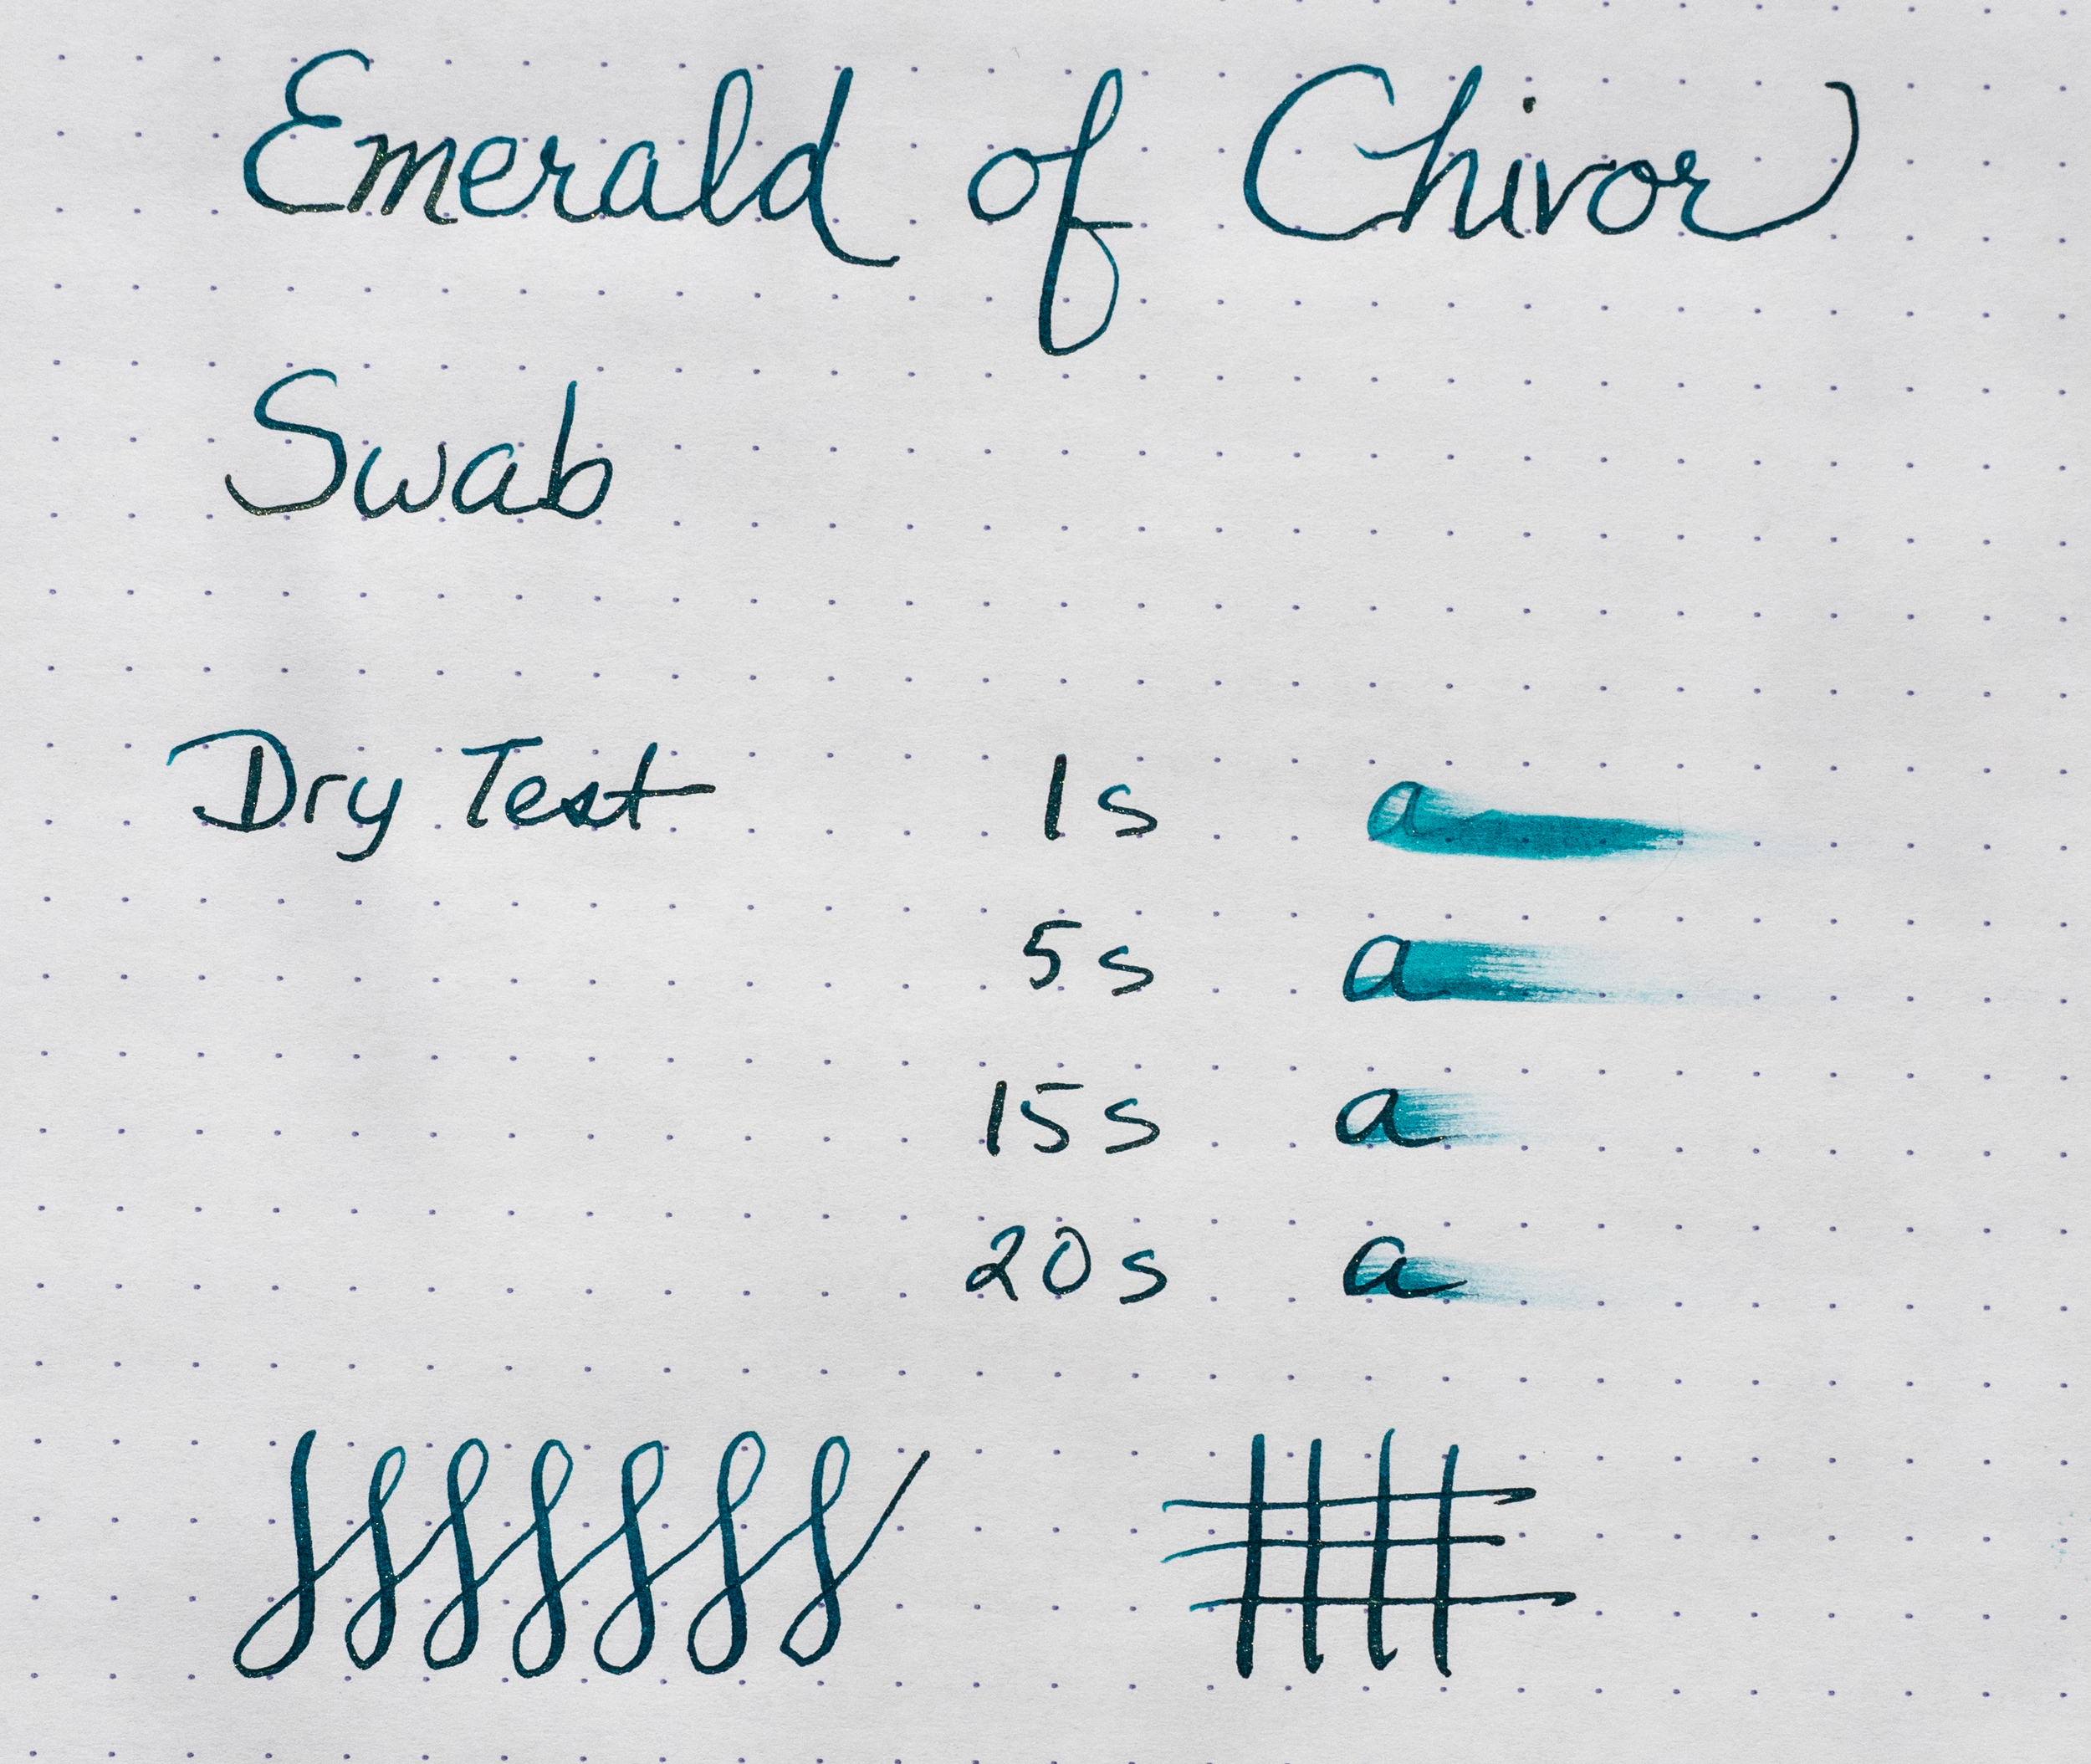 Emerald of Chivor
Swab
Dry Test 1s a
5s a
15s a
20s a